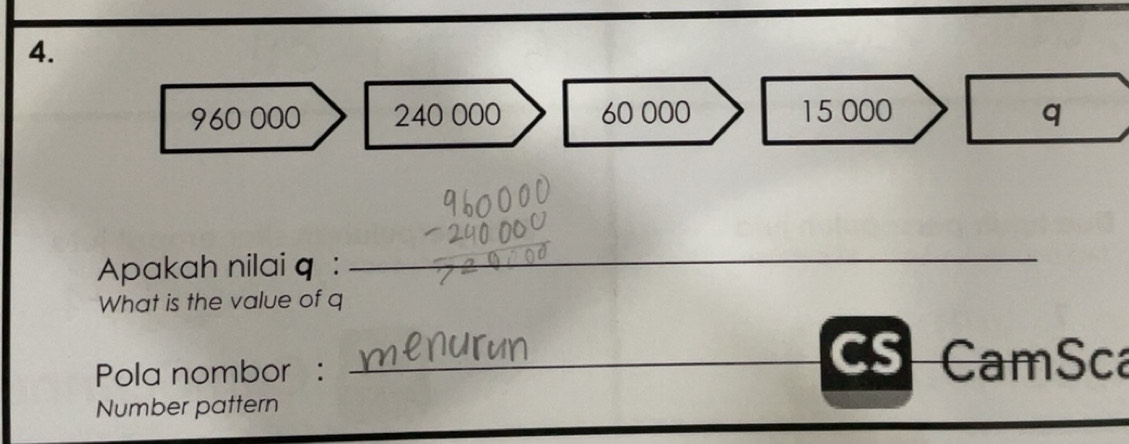 4.
960 000 240 000 60 000 15 000 q
960000
- 240 000
720000
Apakah nilai q :
What is the value of q
menurun
Pola nombor :
Number pattern
CS CamSca